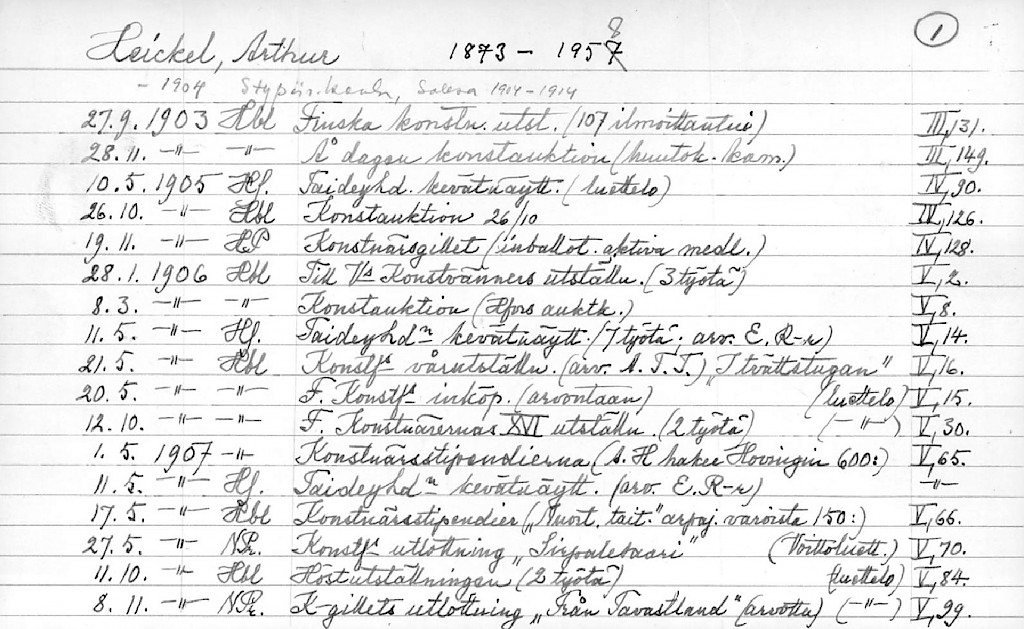 Heickel, Arthur 1873 - 1958 1
- 1904 1914-1914
27.9. 1903 Hbl Finska konstn. utst. (107 ilmoittautui) III,131.
28.11. -"- -"- Å dagen konstauktion (huutok. kam.) III,149.
10.5. 1905 Hf. Taideyhd. kevätnäytt. (luettelo) IV,90.
26.10. -"- Hbl Konstauktion 26/10 IV,126.
19.11. -"- HP Konstnärsgillet (inballot. aktiva medl.) IV,128.
28.1. 1906 Hbl Till Konstvänners utställn. (3 työtä) V,2.
8.3. -"- -"- Konstauktion (Hfors auktk.) V,8.
11.5. -"- Hf. Taideyhdn kevätnäytt. (7 työtä; arv. E. R-r) V,14.
21.5. -"- Hbl Konstfs vårutställn. (arv. A. T. T.) "I tvättstugan" V,16.
20.5. -"- -"- F. Konstfs inköp. (arvontaan) (luettelo) V,15.
12.10. -"- -"- F. Konstnärernas XVI utställn. (2 työtä) (-"-) V,30.
1.5. 1907 -"- Konstnärsstipendierna (A. H hakee Hovingin 600:) V,65.
11.5. -"- Hf. Taideyhdn kevätnäytt. (arv. E. R-r) -"-
17.5. -"- Hbl Konstnärsstipendier ("Nuort. tait." arpaj. varoista 150:) V,66.
27.5. -"- NPr. Konstfs utlottning "Sirpalebaari" (Voittoluett.) V,70.
11.10. -"- Hbl Höstutställningen (2 työtä) (luettelo) V,84.
8.11. -"- NPr. K-gillets utlottning "Från Tavastland" (arvottu) (-"-) V,99.